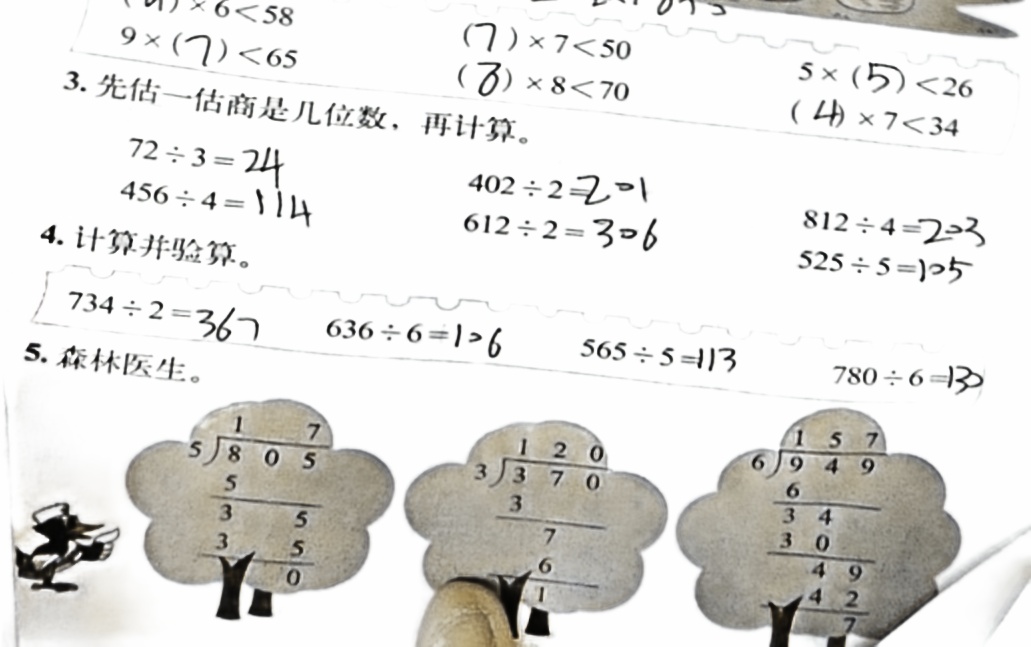 ×6<58
(7)×7<50
5×(5)<26
9×(7)<65
(8)×8<70
(4)×7<34
3. 先估一估商是几位数，再计算。
72÷3=24
402÷2=201
812÷4=203
456÷4=114
612÷2=306
525÷5=105
4. 计算并验算。
734÷2=367
636÷6=106
565÷5=113
780÷6=130
5. 森林医生。
1 7
5 8 0 5
5
3 5
3 5
0
1 2 0
3 3 7 0
3
7
6
1
1 5 7
6 9 4 9
6
3 4
3 0
4 9
4 2
7